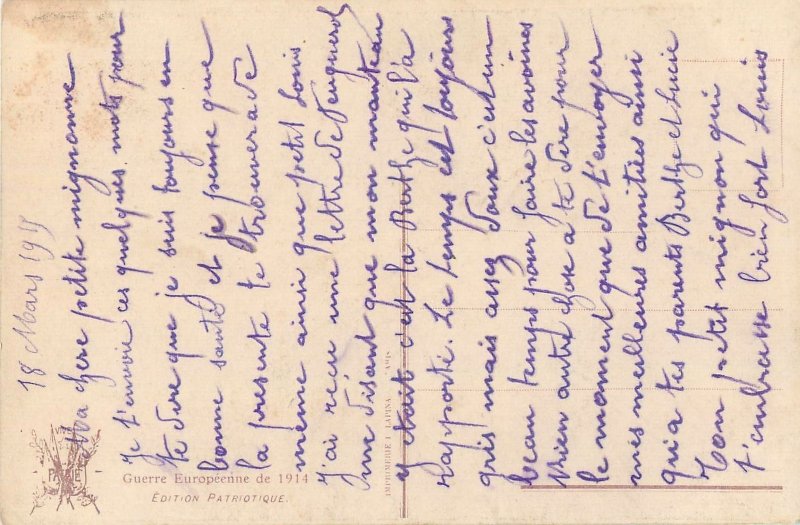 18 Mars 1915
Ma chere petite mignonne
Je t'envoie ces quelques mots pour
te dire que je suis toujours en
bonne santé et je pense que
la presente te trouvera de
meme ainsi que petit Louis.
J'ai recu une lettre de
me disant que mon manteau
y etait c'est la Berthe qui l'a
rapporté. Le temps est toujours
gris mais assez doux c'est un
beau temps pour faire les avoines
Rien autre chose a te dire pour
le moment que de t'envoyer
mes meilleures amitiées ainsi
qu'a tes parents Berthe et Lucie
Ton petit mignon qui
t'embrasse bien fort Louis
PATRIE
Guerre Européenne de 1914
ÉDITION PATRIOTIQUE.
IMPRIMERIE I. LAPINA PARIS